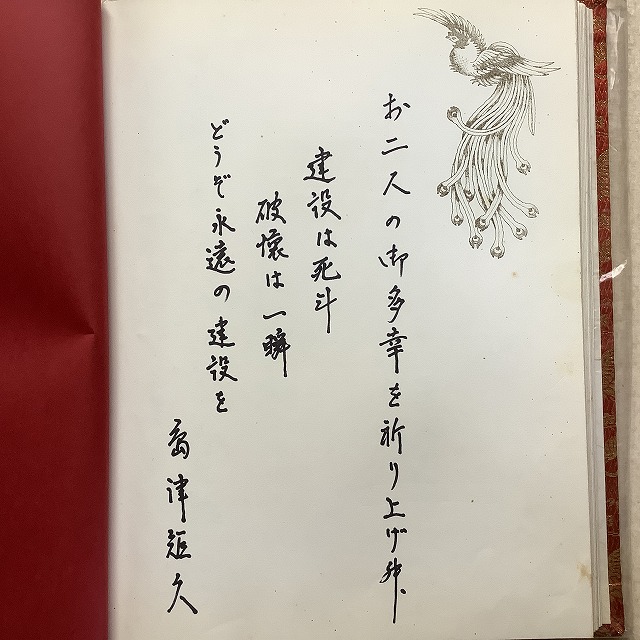 お二人の御多幸を祈り上げ升、
建設は死斗
破懐は一瞬
どうぞ永遠の建設を
島津矩久